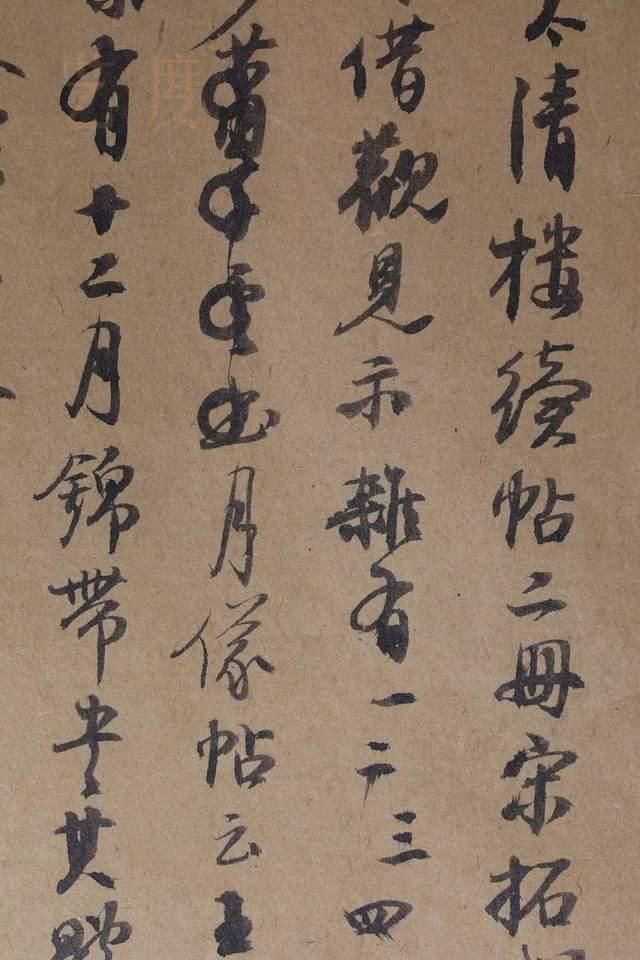 清樓續帖二冊宋拓
借觀見示雜有一二三四
月儀帖云王
有十二月錦帶書其